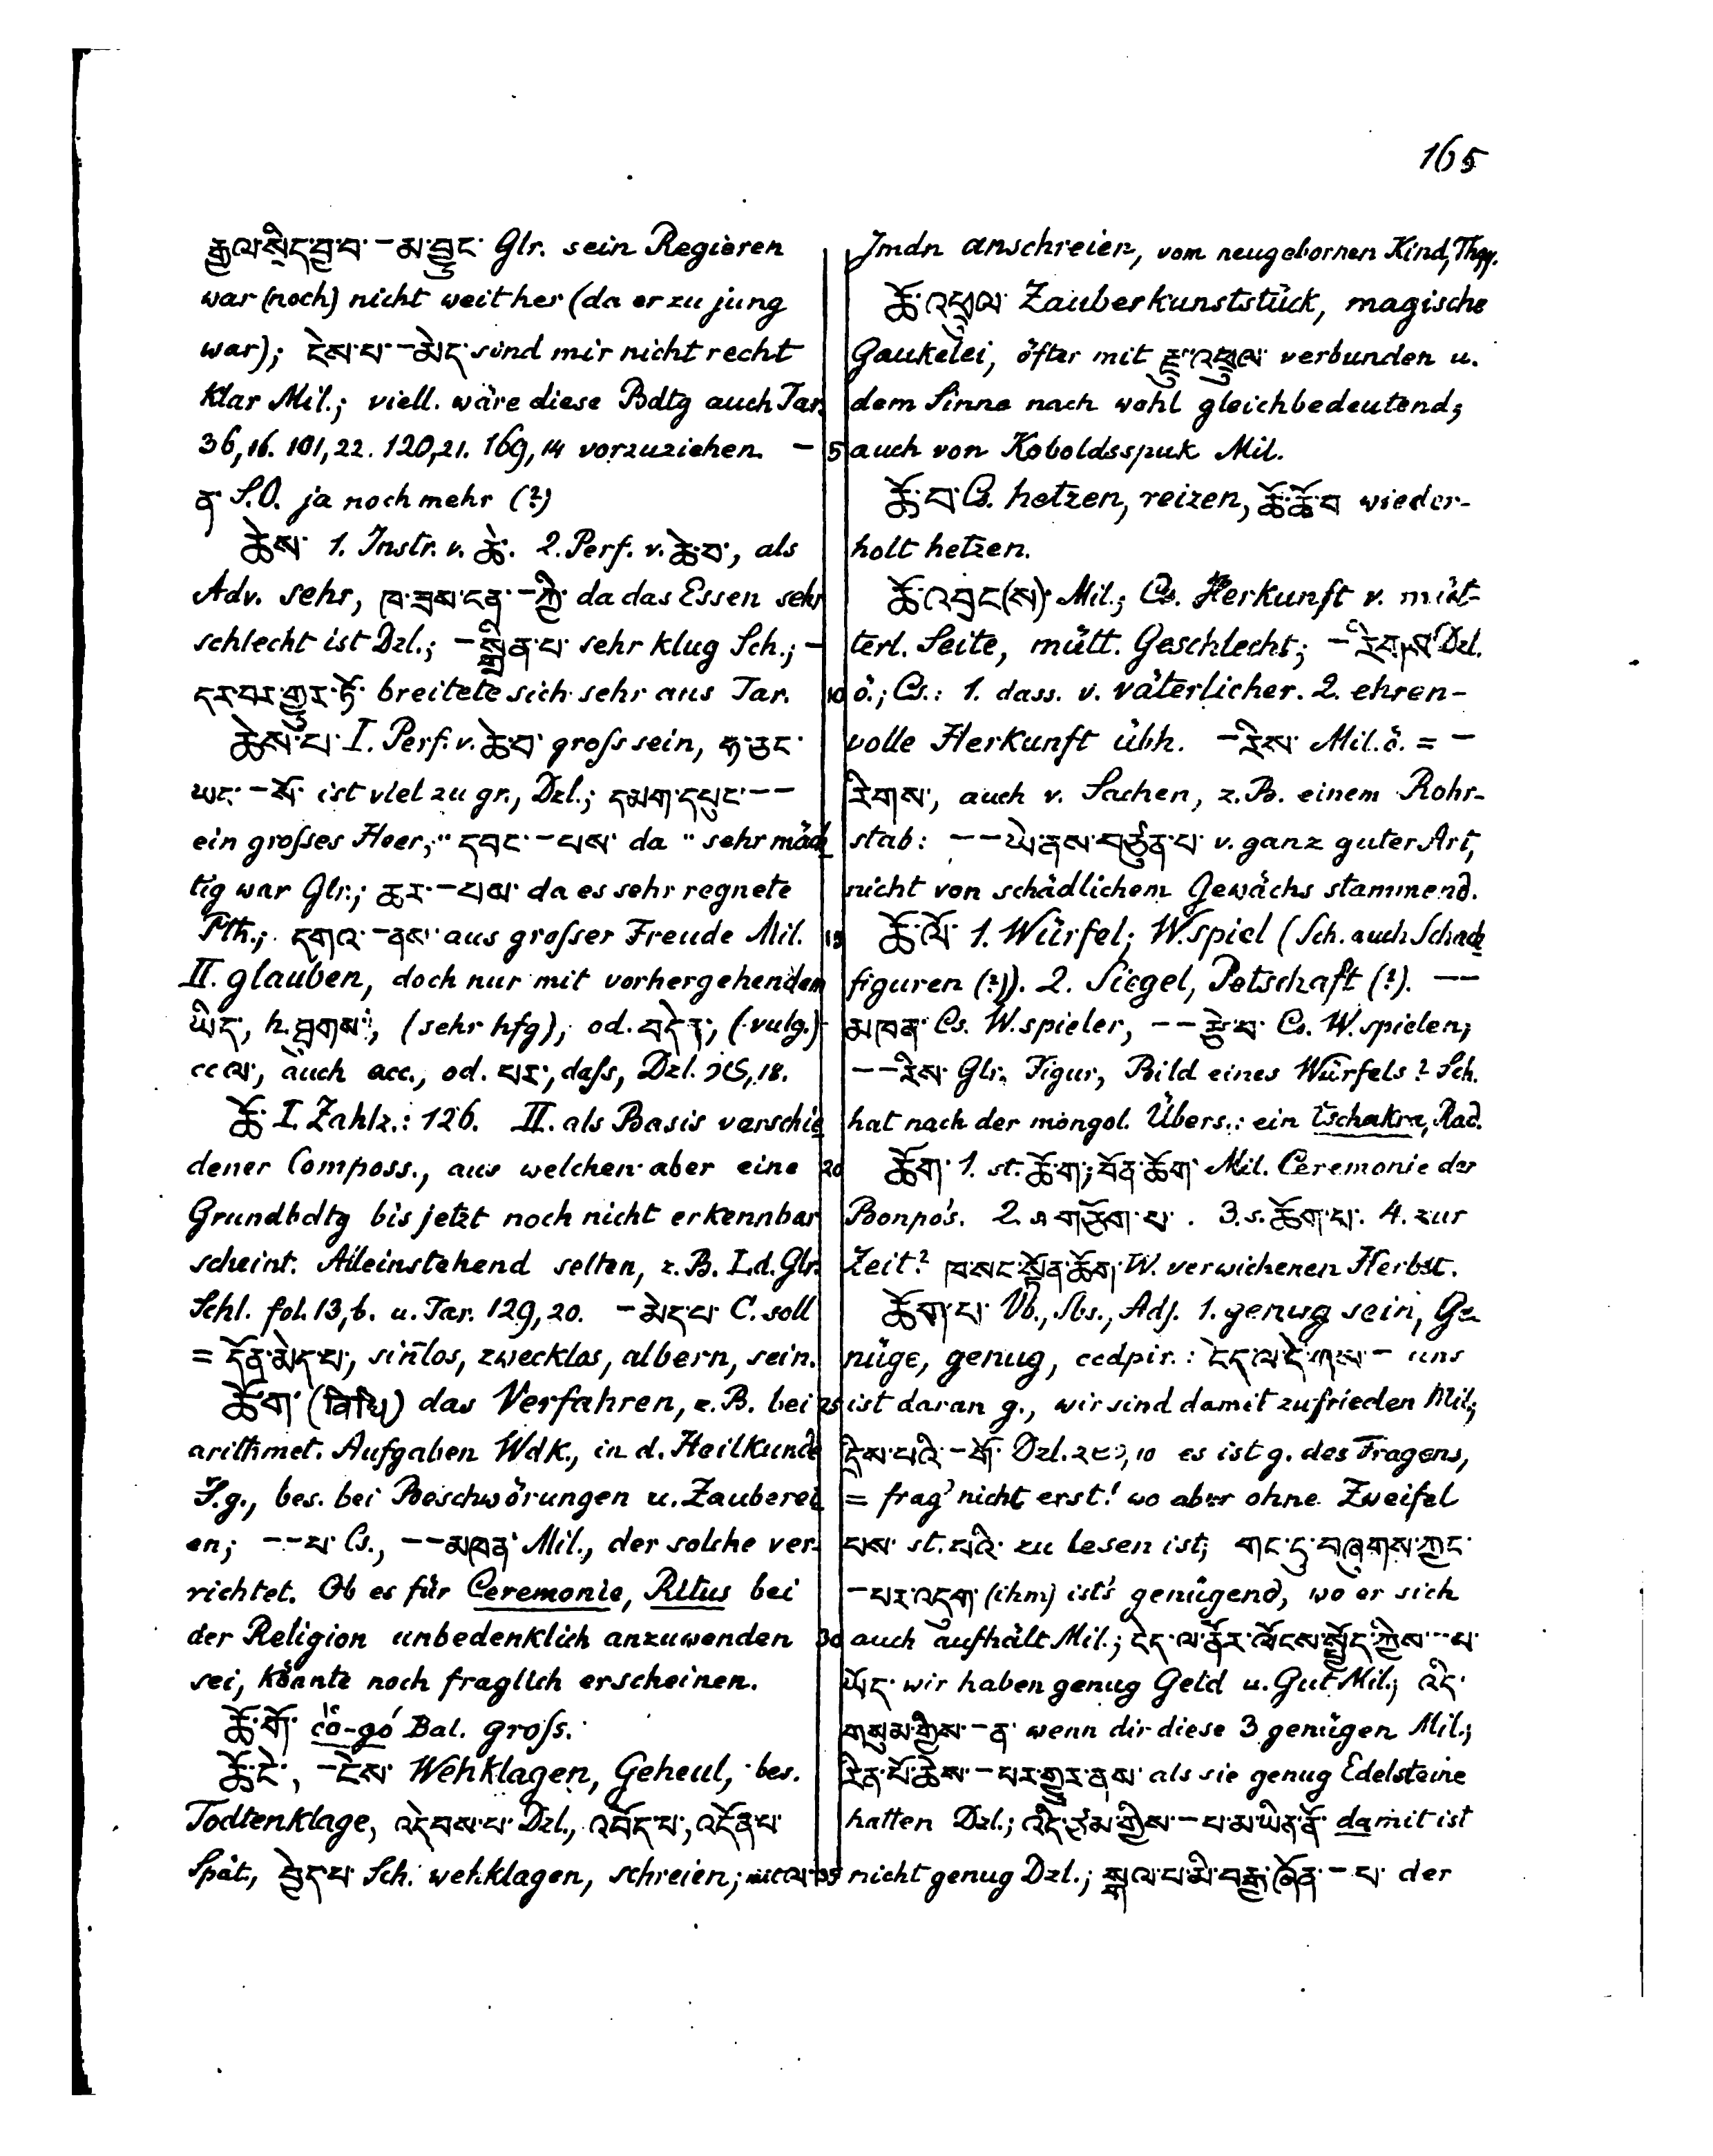 165
རྒྱལ་སྲིད་བྱ་བ་ – མ་བྱུང་ Glr. sein Regieren
war (noch) nicht weit her (da er zu jung
war); ངེས་པ་ – མེད་ sind mir nicht recht
klar Mil.; viell. wäre diese Bdtg auch Tar.
36,16. 101,22. 120,21. 169,14 vorzuziehen. –
ན་ S.O. ja noch mehr (?)
ཆེས་ 1. Instr. v. ཆེ་. 2. Perf. v. ཆེ་བ་, als
Adv. sehr, ཁ་ཟས་ངན་ – ཀྱི་ da das Essen sehr
schlecht ist Dzl.; – སྒྲིན་པ་ sehr klug Sch.; –
དར་བར་གྱུར་ཏོ་ breitete sich sehr aus Tar.
ཆེས་པ་ I. Perf. v. ཆེ་བ་ gross sein, ཧ་ཅང་
ཡང་ – སོ་ ist viel zu gr., Dzl.; དམག་དཔུང་ – –
ein grosses Heer, " དབང་ – པས་ da " sehr mäch
tig war Glr.; ཆར་ – པས་ da es sehr regnete
Pth.; དགའ་ – ནས་ aus grosser Freude Mil.
II. glauben, doch nur mit vorhergehendem
ཡིད་, h. ཐུགས་, (sehr hfg), od. བདེན་, (vulg.)
cc ལ་, auch acc., od. པར་, dass, Dzl. ༢༤, 18.
ཆོ་ I. Zahlz.: 126. II. als Basis verschie
dener Composs., aus welchen aber eine
Grundbdtg bis jetzt noch nicht erkennbar
scheint. Alleinstehend selten, z. B. I.d. Glr.
Schl. fol. 13, b. u. Tar. 129, 20. – མེད་པ་ C. soll
= དོན་མེད་པ་, sin̄los, zwecklos, albern, sein.
ཆོ་ག་ (विधि) das Verfahren, z. B. bei
arithmet. Aufgaben Wdk., in d. Heilkunde
S.g., bes. bei Beschwörungen u. Zauberei
en; – – པ་ Cs., – – མཁན་ Mil., der solche ver-
richtet. Ob es für Ceremonie, Ritus bei
der Religion unbedenklich anzuwenden
sei, könnte noch fraglich erscheinen.
ཆོ་གོ་ čo-gó Bal. gross.
ཆོ་ངེ་, – ངེས་ Wehklagen, Geheul, bes.
Todtenklage, འདེབས་པ་ Dzl., འབོད་པ་, འདོན་པ་
Spät., བྱེད་པ་ Sch. wehklagen, schreien; mit ལ་
5
10
15
20
25
30
35
Jmdn anschreien, vom neugebornen Kind, Thgy.
ཆོ་འཕྲུལ་ Zauberkunststück, magische
Gaukelei, öfter mit རྫུ་འཕྲུལ་ verbunden u.
dem Sinne nach wohl gleichbedeutend;
auch von Koboldsspuk Mil.
ཆོ་བ་ Cs. hetzen, reizen, ཆོ་ཆོ་བ wieder-
holt hetzen.
ཆོ་འབྲང(ས)་ Mil.; Cs. Herkunft v. müt-
terl. Seite, mütt. Geschlecht; – རིགས་ Dzl.
ö.; Cs.: 1. dass. v. väterlicher. 2. ehren-
volle Herkunft übh. – རིས་ Mil. ö. = –
རིགས་, auch v. Sachen, z. B. einem Rohr-
stab: – – ཡེ་ནས་བཙུན་པ་ v. ganz guter Art,
nicht von schädlichem Gewächs stammend.
ཆོ་ལོ་ 1. Würfel; W. spiel (Sch. auch Schach
figuren (?)). 2. Siegel, Petschaft (?). – –
མཁན་ Cs. W. spieler, – – རྩེ་བ་ Cs. W. spielen;
– – རིས་ Glr. Figur, Bild eines Würfels? Sch.
hat nach der mongol. Übers.: ein tschakra, Rad.
ཆོག་ 1. st. ཆོ་ག་; བོན་ཆོག་ Mil. Ceremonie der
Bonpo's. 2. v གཅོག་པ་. 3. s. ཆོག་པ་. 4. zur
Zeit? ཁ་སང་སྟོན་ཆོག་ W. verwichenen Herbst.
ཆོག་པ་ Vb., Sbs., Adj. 1. genug sein, Ge-
nüge, genug, ccdpir.: ངེད་ལ་དེ་གས་ – uns
ist daran g., wir sind damit zufrieden Mil;
དྲིས་པའི་ – གོ་ Dzl. ༢༩༡, 10 es ist g. des Fragens,
= frag' nicht erst! wo aber ohne Zweifel
པས་ st. པའི་ zu lesen ist; གང་དུ་བཞུགས་ཀྱང་
– པར་འདུག་ (ihm) ist's genügend, wo er sich
auch aufhält Mil.; ངེད་ལ་ནོར་ལོངས་སྤྱོད་ཀྱིས་ – པ་
ཡོད་ wir haben genug Geld u. Gut Mil.; འདི་
གསུམ་གྱིས་ – ན་ wenn dir diese 3 genügen Mil.;
རིན་པོ་ཆེས་ – པར་གྱུར་ནས་ als sie genug Edelsteine
hatten Dzl.; འདི་ཙམ་གྱིས་ – པ་མ་ཡིན་ནོ་ damit ist
nicht genug Dzl.; སྐལ་པ་མི་བརྒྱ་ཐོན་ – པ་ der